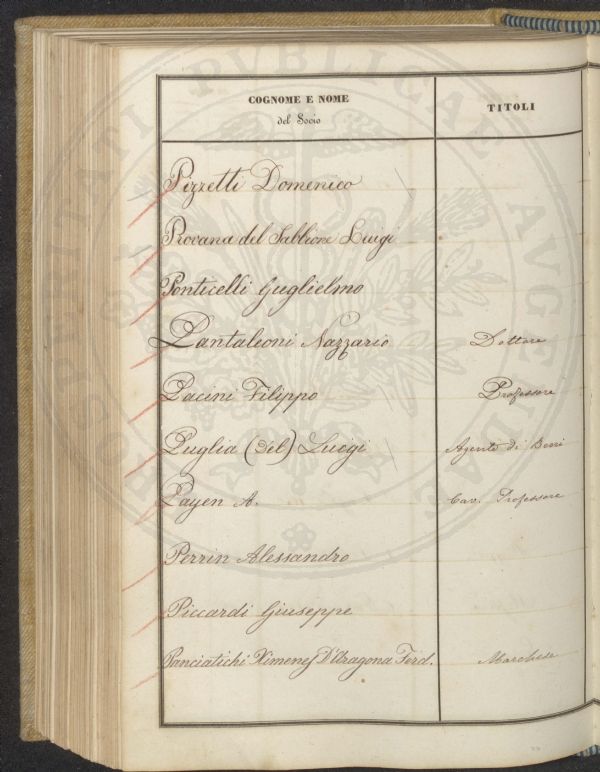 COGNOME E NOME
del Socio
TITOLI
Pizzetti Domenico
Provana del Sabbione Luigi
Ponticelli Guglielmo
Pantaleoni Nazzario Dottore
Pacini Filippo Professore
Puglia (Del) Luigi Agente di Beni
Payen A. Cav. Professore
Perrin Alessandro
Piccardi Giuseppe
Panciatichi Ximenes D'Aragona Ferd. Marchese